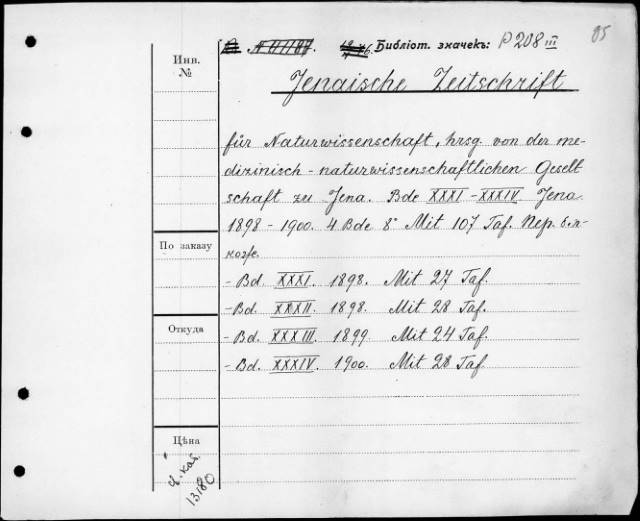 Библіот. значекъ: P 208 III
85
Инв.
№
Jenaische Zeitschrift
für Naturwissenschaft, hrsg. von der me-
dizinisch-naturwissenschaftlichen Gesell
schaft zu Jena. Bde XXXI-XXXIV. Jena
1898-1900. 4 Bde 8° Mit 107 Taf. Пер. б. л.
козѣе.
- Bd. XXXI. 1898. Mit 27 Taf.
- Bd. XXXII. 1898. Mit 28 Taf.
- Bd. XXXIII. 1899. Mit 24 Taf.
- Bd. XXXIV. 1900. Mit 28 Taf.
По заказу
Откуда
Цѣна
кат.
13180